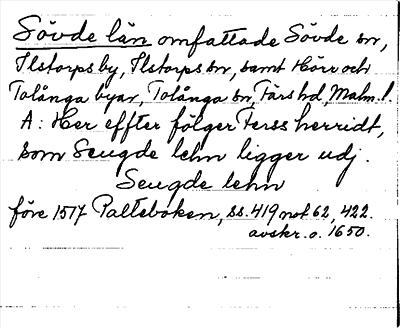 Sövde län omfattade Sövde sn,
Ilstorps by, Ilstorps sn, samt Hörr och
Tolånga byar, Tolånga sn, Färs hd, Malm. l.
A: Her effter følger Ferss herridt,
som Seugde lehn ligger udj.
Seugde lehn
före 1517 Palteboken, ss. 419 not 62, 422.
avskr. o. 1650.